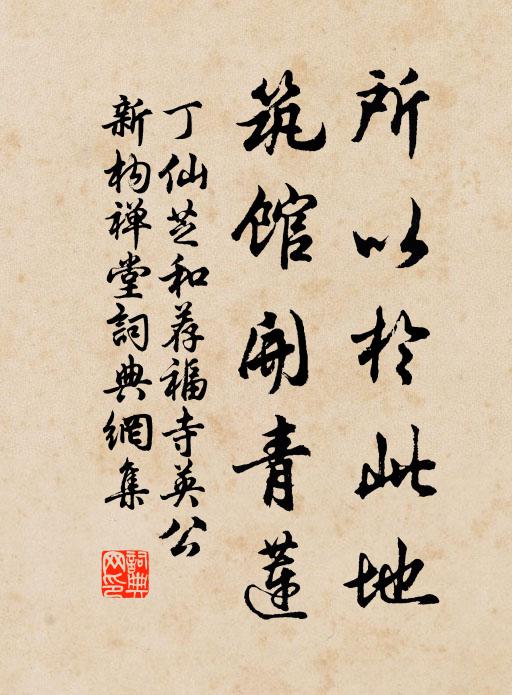 所以於此地
筑馆开青莲
丁仙芝和荐福寺英公
新构禅堂詞典網集
詞典網印